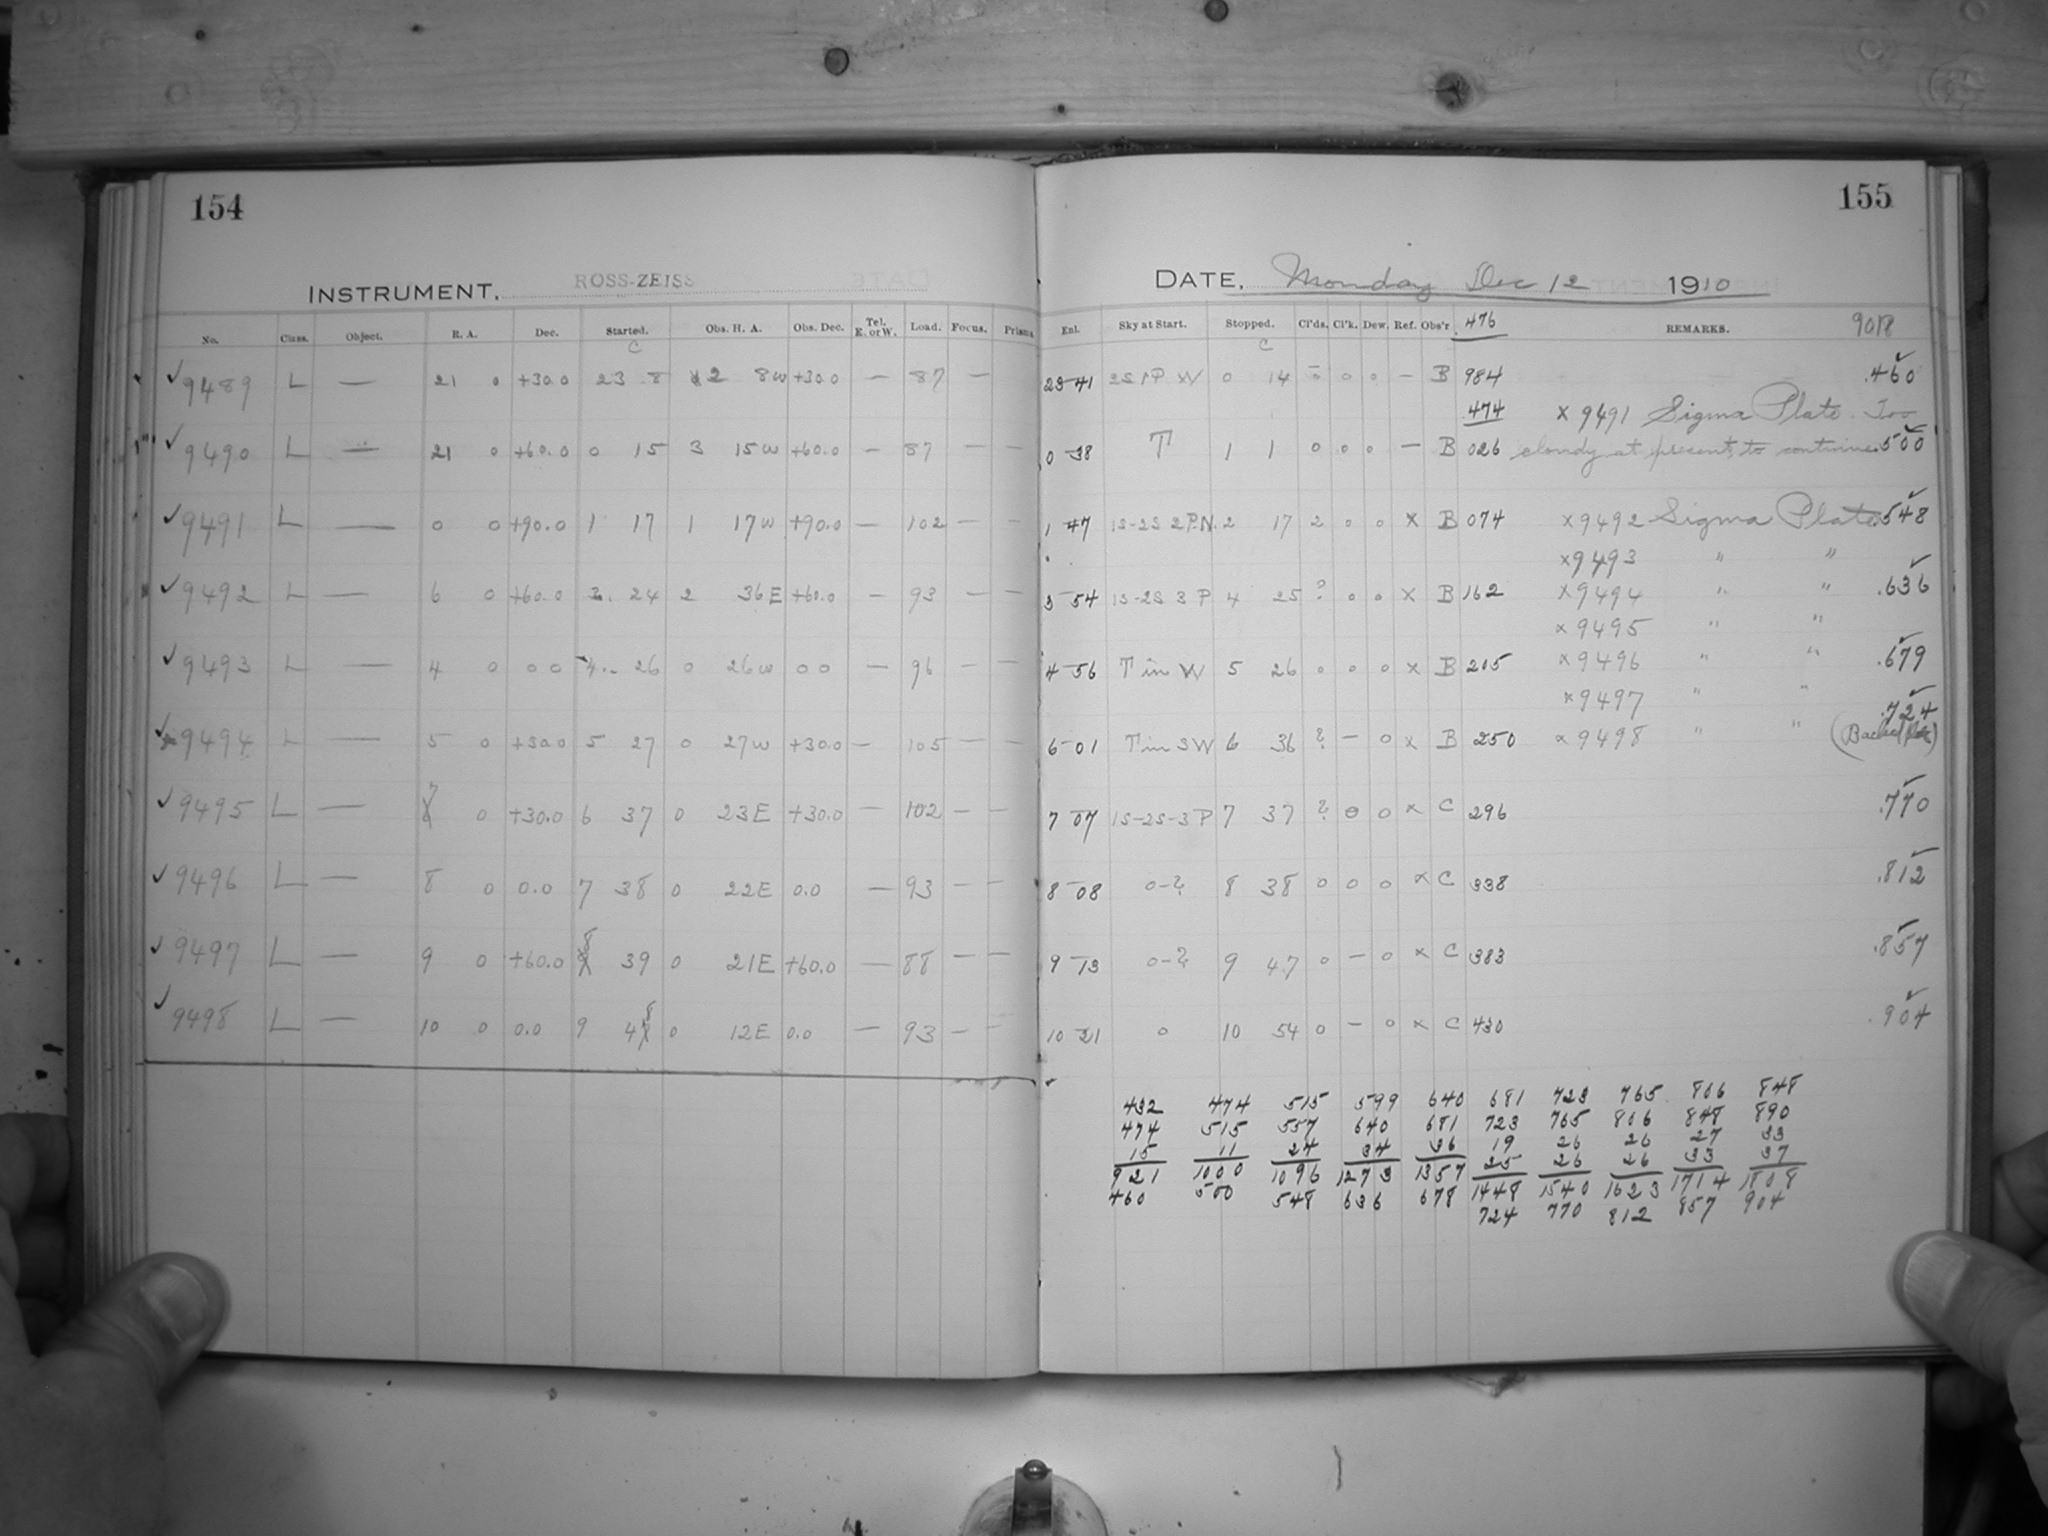 154
155
INSTRUMENT. ROSS-ZEISS
DATE. Monday Dec 12 1910
No. Class. Object. R. A. Dec. Started. Obs. H. A. Obs. Dec. Tel. E. or W. Load. Focus. Prisms
Enl. Sky at Start. Stopped. Cl'ds. Cl'k. Dew. Ref. Obs'r. 476 REMARKS. 9018
C C
✓ 9489 L — 21 0 +30.0 23 8 2 8w +30.0 — 87 — 23 41 2S1P W 0 14 0 0 — B 984 .460
.474 x 9491 Sigma Plate. Too
✓ 9490 L — 21 0 +60.0 0 15 3 15w +60.0 — 87 — — 0 38 T 1 1 0 0 0 — B 026 cloudy at present, to continue .500
✓ 9491 L — 0 0 +90.0 1 17 1 17w +90.0 — 102 — — 1 47 1S-2S 2P.N. 2 17 2 0 0 x B 074 x 9492 Sigma Plate .548
x 9493 " "
✓ 9492 L — 6 0 +60.0 3. 24 2 36E +60.0 — 93 — — 3 54 1S-2S 3 P 4 25 ? 0 0 x B 162 x 9494 " " .636
x 9495 " "
✓ 9493 L — 4 0 0 0 4. 26 0 26w 0 0 — 96 — — 4 56 T in W 5 26 0 0 0 x B 205 x 9496 " " .679
x 9497 " "
.724
✓ 9494 L — 5 0 +30.0 5 27 0 27w +30.0 — 105 — — 6 01 T in SW 6 36 ? — 0 x B 250 x 9498 " " (Backed Plate)
✓ 9495 L — 7 0 +30.0 6 37 0 23E +30.0 — 102 — — 7 07 1S-2S-3P 7 37 ? 0 0 x C 296 .770
✓ 9496 L — 8 0 0.0 7 38 0 22E 0.0 — 93 — — 8 08 0-? 8 38 0 0 0 x C 338 .812
✓ 9497 L — 9 0 +60.0 8 39 0 21E +60.0 — 88 — — 9 13 0-? 9 47 0 — 0 x C 383 .857
✓ 9498 L — 10 0 0.0 9 48 0 12E 0.0 — 93 — — 10 21 0 10 54 0 — 0 x C 430 .904
432 474 515 599 640 681 723 765 806 848
474 515 557 640 681 723 765 806 848 890
15 11 24 34 36 19 26 26 27 33
921 1000 1096 1273 1357 25 26 26 33 37
460 500 548 636 678 1448 1540 1623 1714 1808
724 770 812 857 904